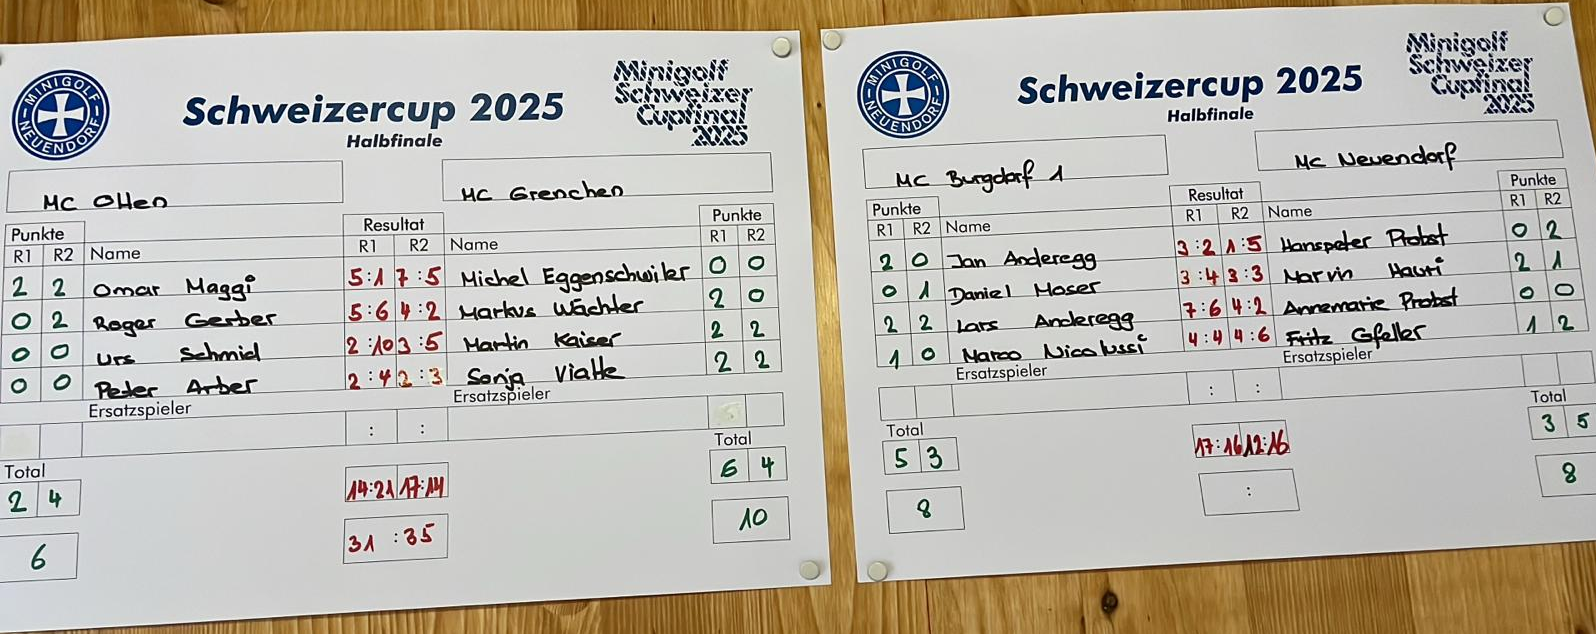 MINIGOLF NEUENDORF
Schweizercup 2025
Halbfinale
Minigolf
Schweizer
Cupfinal
2025
MC Olten
MC Grenchen
Punkte Resultat Punkte
R1 R2 Name R1 R2 Name R1 R2
2 2 Omar Maggi 5:1 7:5 Michel Eggenschwiler 0 0
0 2 Roger Gerber 5:6 4:2 Markus Wächter 2 0
0 0 Urs Schmid 2:10 3:5 Martin Kaiser 2 2
0 0 Peter Arber 2:4 2:3 Sonja Viatte 2 2
Ersatzspieler Ersatzspieler
: :
Total Total
2 4 14:21 17:14 6 4
6 31:35 10
MINIGOLF NEUENDORF
Schweizercup 2025
Halbfinale
Minigolf
Schweizer
Cupfinal
2025
MC Burgdorf 1
MC Neuendorf
Punkte Resultat Punkte
R1 R2 Name R1 R2 Name R1 R2
2 0 Jan Anderegg 3:2 1:5 Hanspeter Probst 0 2
0 1 Daniel Moser 3:4 3:3 Marvin Hauri 2 1
2 2 Lars Anderegg 7:6 4:2 Annemarie Probst 0 0
1 0 Marco Nicolussi 4:4 4:6 Fritz Gfeller 1 2
Ersatzspieler Ersatzspieler
: :
Total Total
5 3 17:16 12:16 3 5
8 : 8